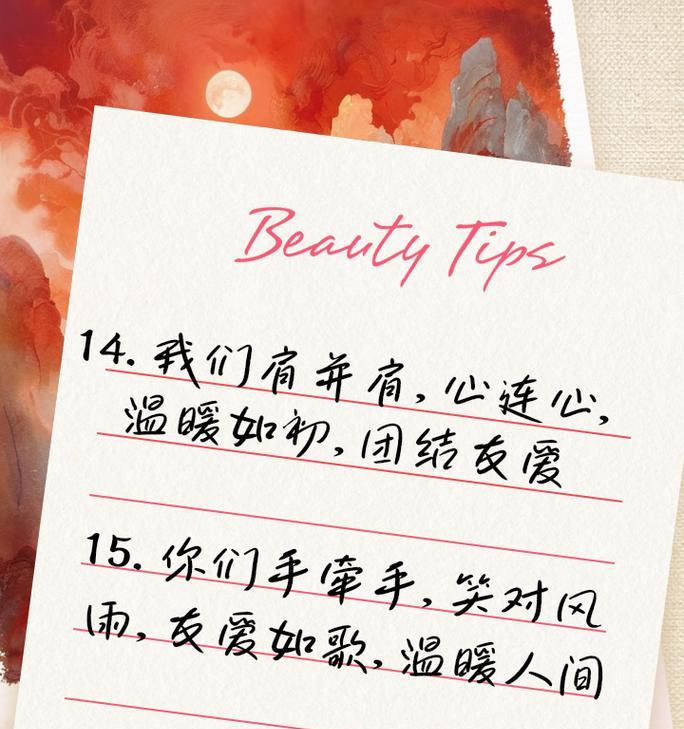 Beauty Tips
14. 我们肩并肩，心连心，
温暖如初，团结友爱
15. 你们手牵手，笑对风
雨，友爱如歌，温暖人间